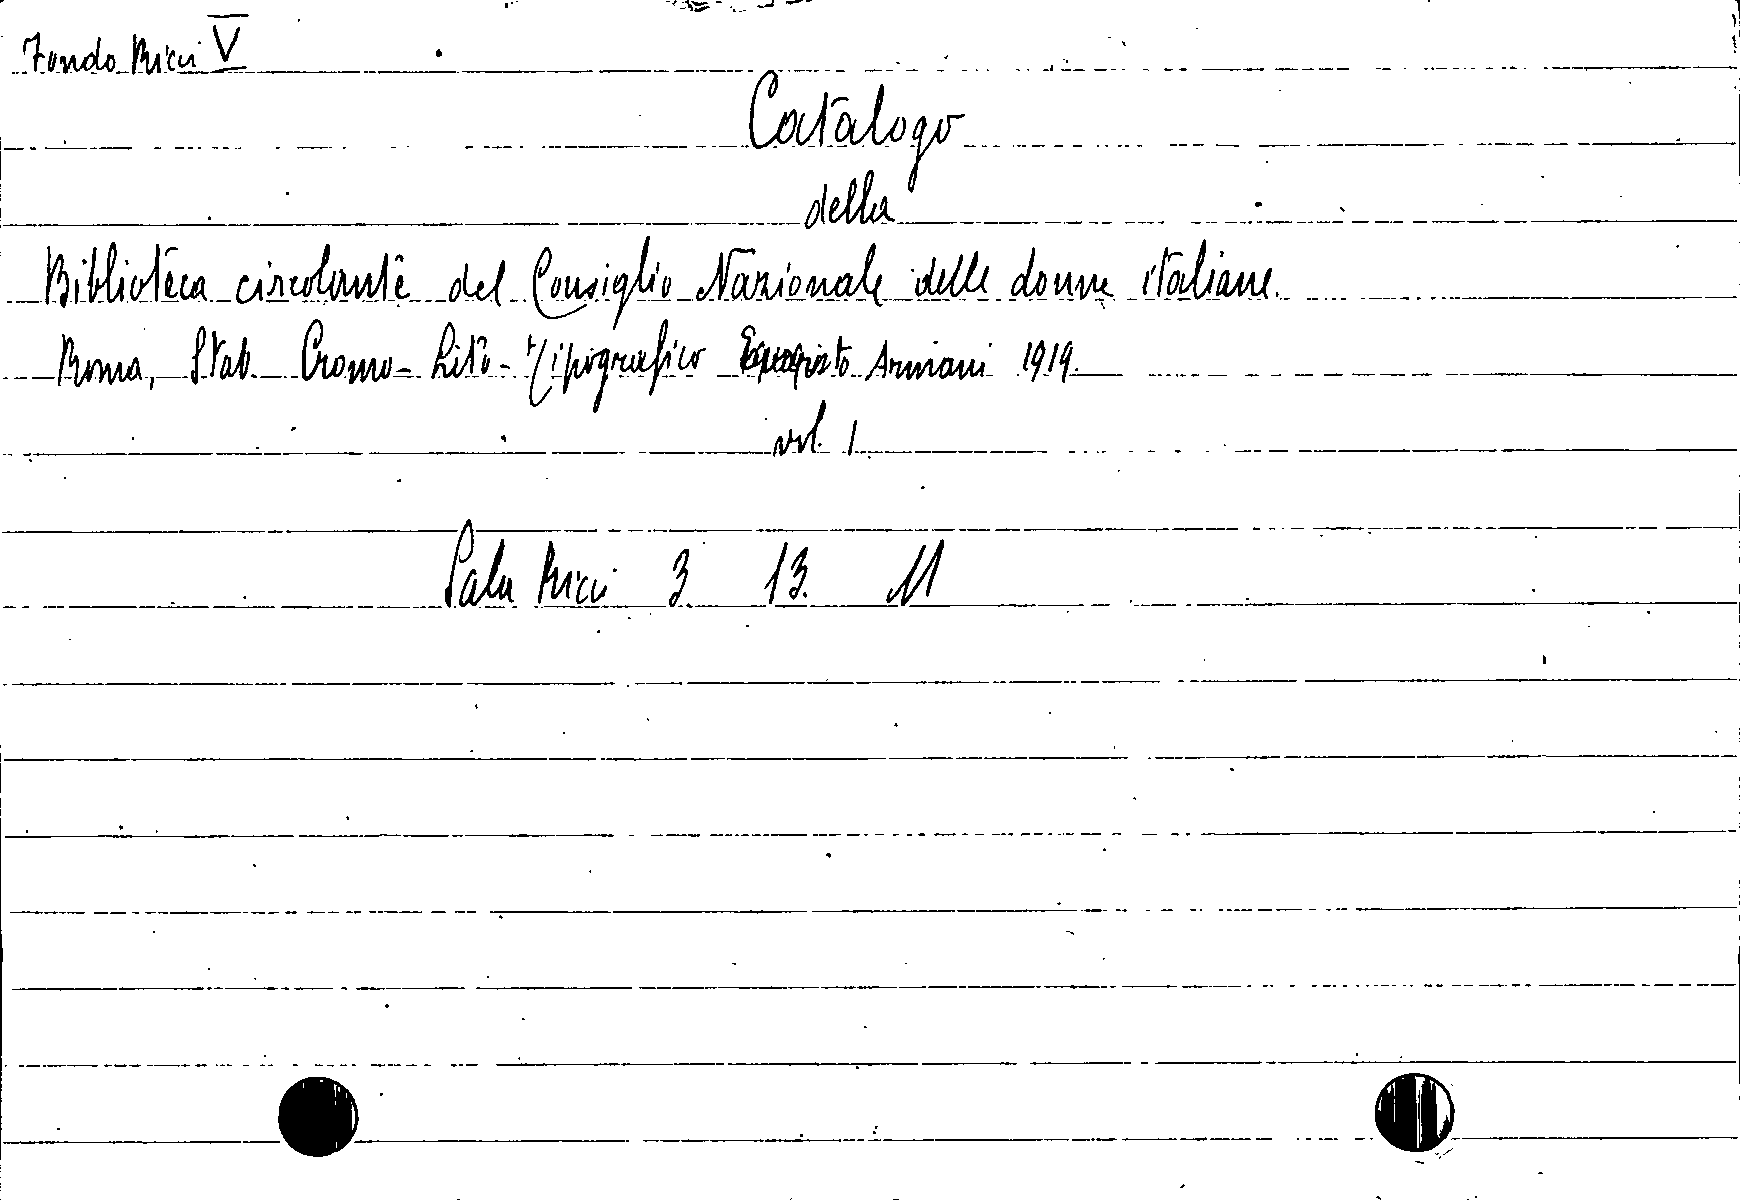 Fondo Ricci V
Catalogo
della
Biblioteca circolante del Consiglio Nazionale delle donne italiane.
Roma, Stab. Cromo-Lito-Tipografico Armani 1919.
vol. 1
Sala Ricci 3. 13. 11